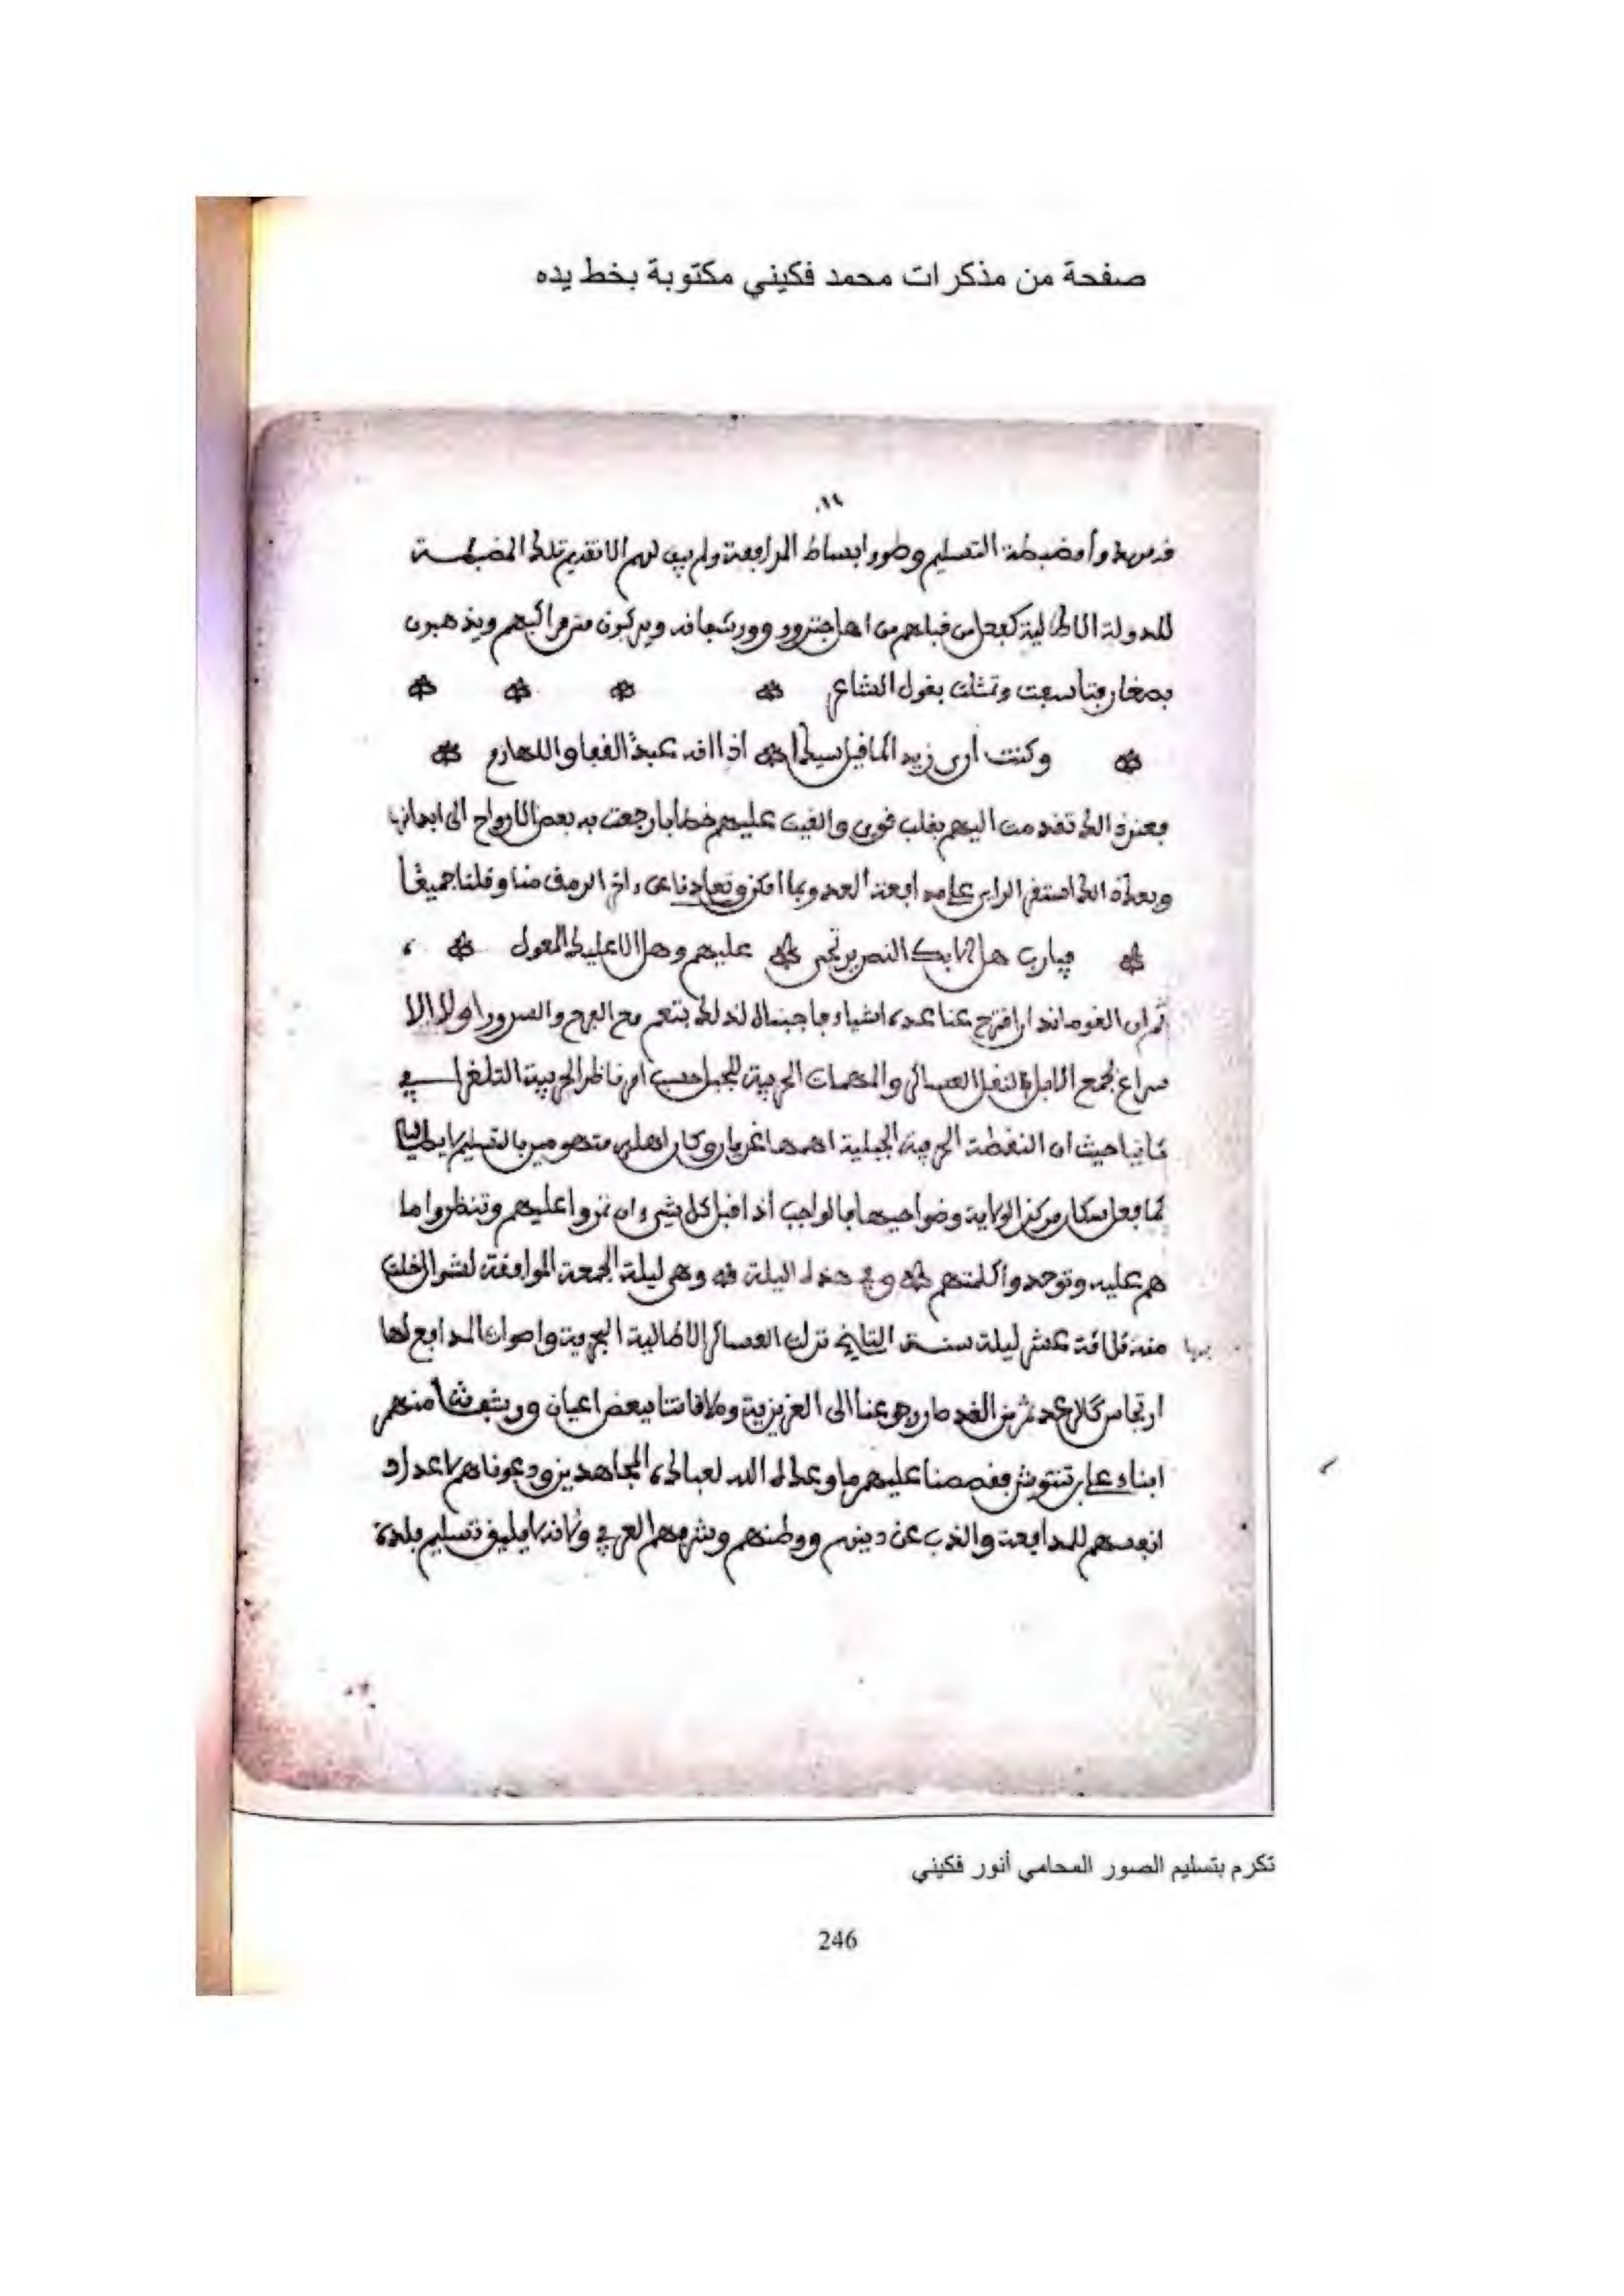 صفحة من مذكرات محمد فكيني مكتوبة بخط يده
التسليم وطووا بساط المرافعة ولم يبق لهم الا تقديم تلك المضبطة
للدولة الاطالية كفعل من قبلهم من اهل جنزور وورشفانه ويركبون ويذهبون
وتمثلت بقول الشاعر
وكنت أرى زيدا كما قيل سيدا اذا انه عبد القفا واللهازم
فعند ذلك تقدمت اليهم بقلب قوي والقيت عليهم خطابا رجعت به بعض الارواح الى ابدانها
وبعد ذلك استقر الراي على مدافعة العدو بما امكن وتعاهدنا على ءاخر الرمق منا وقلنا جميعا
فيارب هل الا بك النصر يرتجى عليهم وهل الا عليك المعول
ثم ان القوماندار اقترح عنا عدة اشياء فاجبناه لذلك بنعم مع الفرح والسرور اولا الا
سراع لجمع الابل لنقل العساكر والمهمات الحربية للجبل حسب امر ناظر الحربية التلغرافي
ثانيا حيث ان النقطة الحربية الجبلية اهمها غريان وكان اهلها بالتسليم لايطاليا
كما فعل سكان مركز الولاية وضواحيها فالواجب اذا قبل كل شيء ان تمروا عليهم وتنظروا ما
هم عليه وتوحدوا كلمتهم وفي هذه اليلة وهي ليلة الجمعة الموافقة لشوال الخلت
منه ثلاثة عشر ليلة سنة التاريخ نزلت العساكر الاطالية البحرية واصوات المدافع لها
ارتجاس كالرعد ثم من الغد صار رجوعنا الى العزيزية وملاقاتنا ببعض اعيان ورشفانة منهم
ابناء فقصصنا عليهم ما وعد الله لعباده المجاهدين ودعوناهم لاعداد
انفسهم للمدافعة والذب عن دينهم ووطنهم وشرفهم العربي ولانه لا يليق تسليم بلدة
تكرم بتسليم الصور المحامي أنور فكيني
246